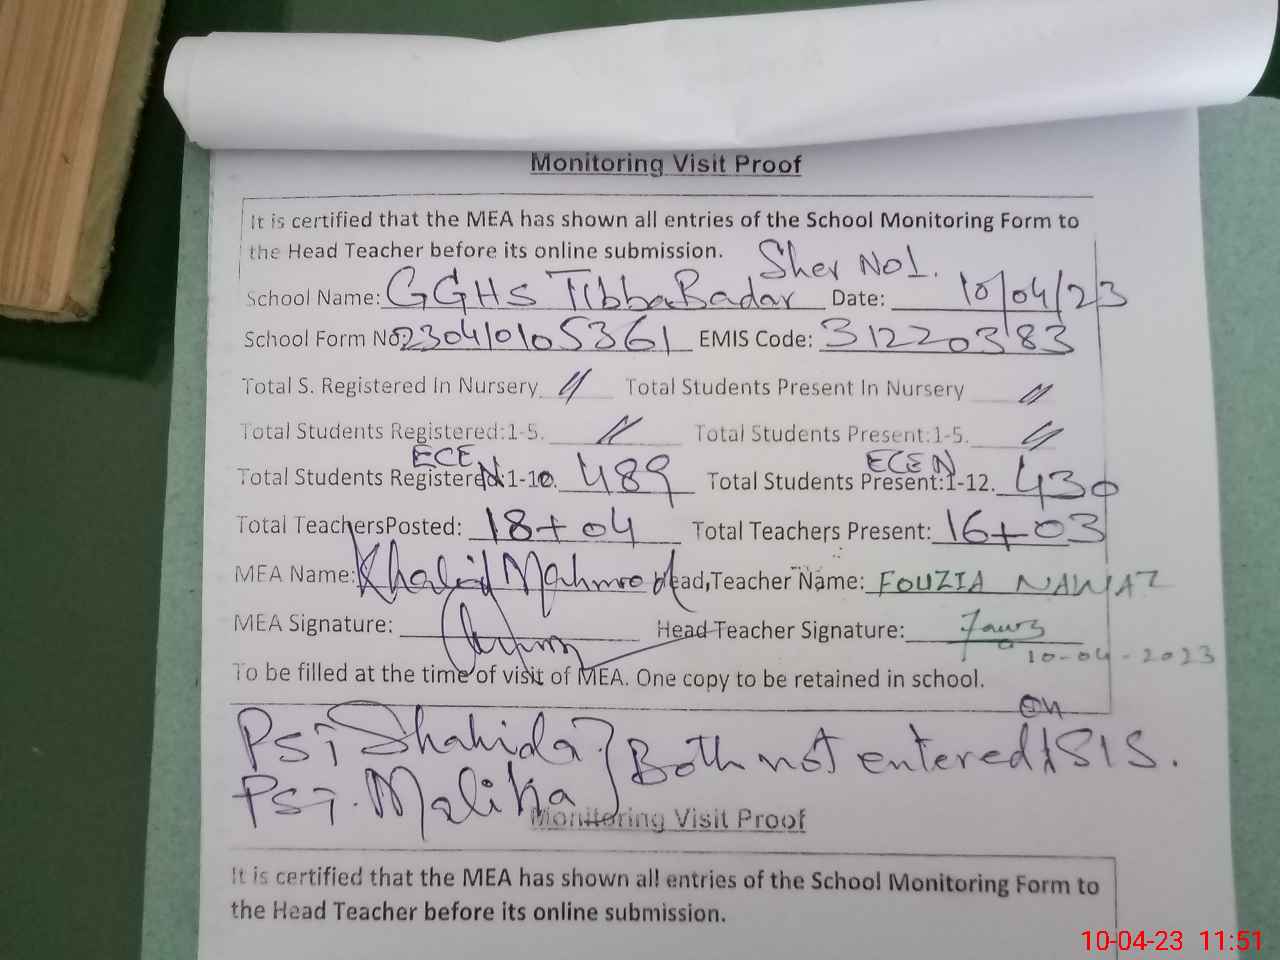 Monitoring Visit Proof
It is certified that the MEA has shown all entries of the School Monitoring Form to
the Head Teacher before its online submission.
Sher No1.
School Name: GGHS TibbaBadar Date: 10/04/23
School Form No: 2304010105361 EMIS Code: 31220383
Total S. Registered In Nursery 11 Total Students Present In Nursery 11
Total Students Registered:1-5. 11 Total Students Present:1-5. 11
ECE N ECE N
Total Students Registered:1-10. 489 Total Students Present:1-12. 430
Total TeachersPosted: 18+04 Total Teachers Present: 16+03
MEA Name: Khalid Mahmood Head,Teacher Name: FOUZIA NAWAZ
MEA Signature: Head Teacher Signature:
10-04-2023
To be filled at the time of visit of MEA. One copy to be retained in school.
on
PST Shahida } Both not entered SIS.
PST. Malika
Monitoring Visit Proof
It is certified that the MEA has shown all entries of the School Monitoring Form to
the Head Teacher before its online submission.
10-04-23 11:51